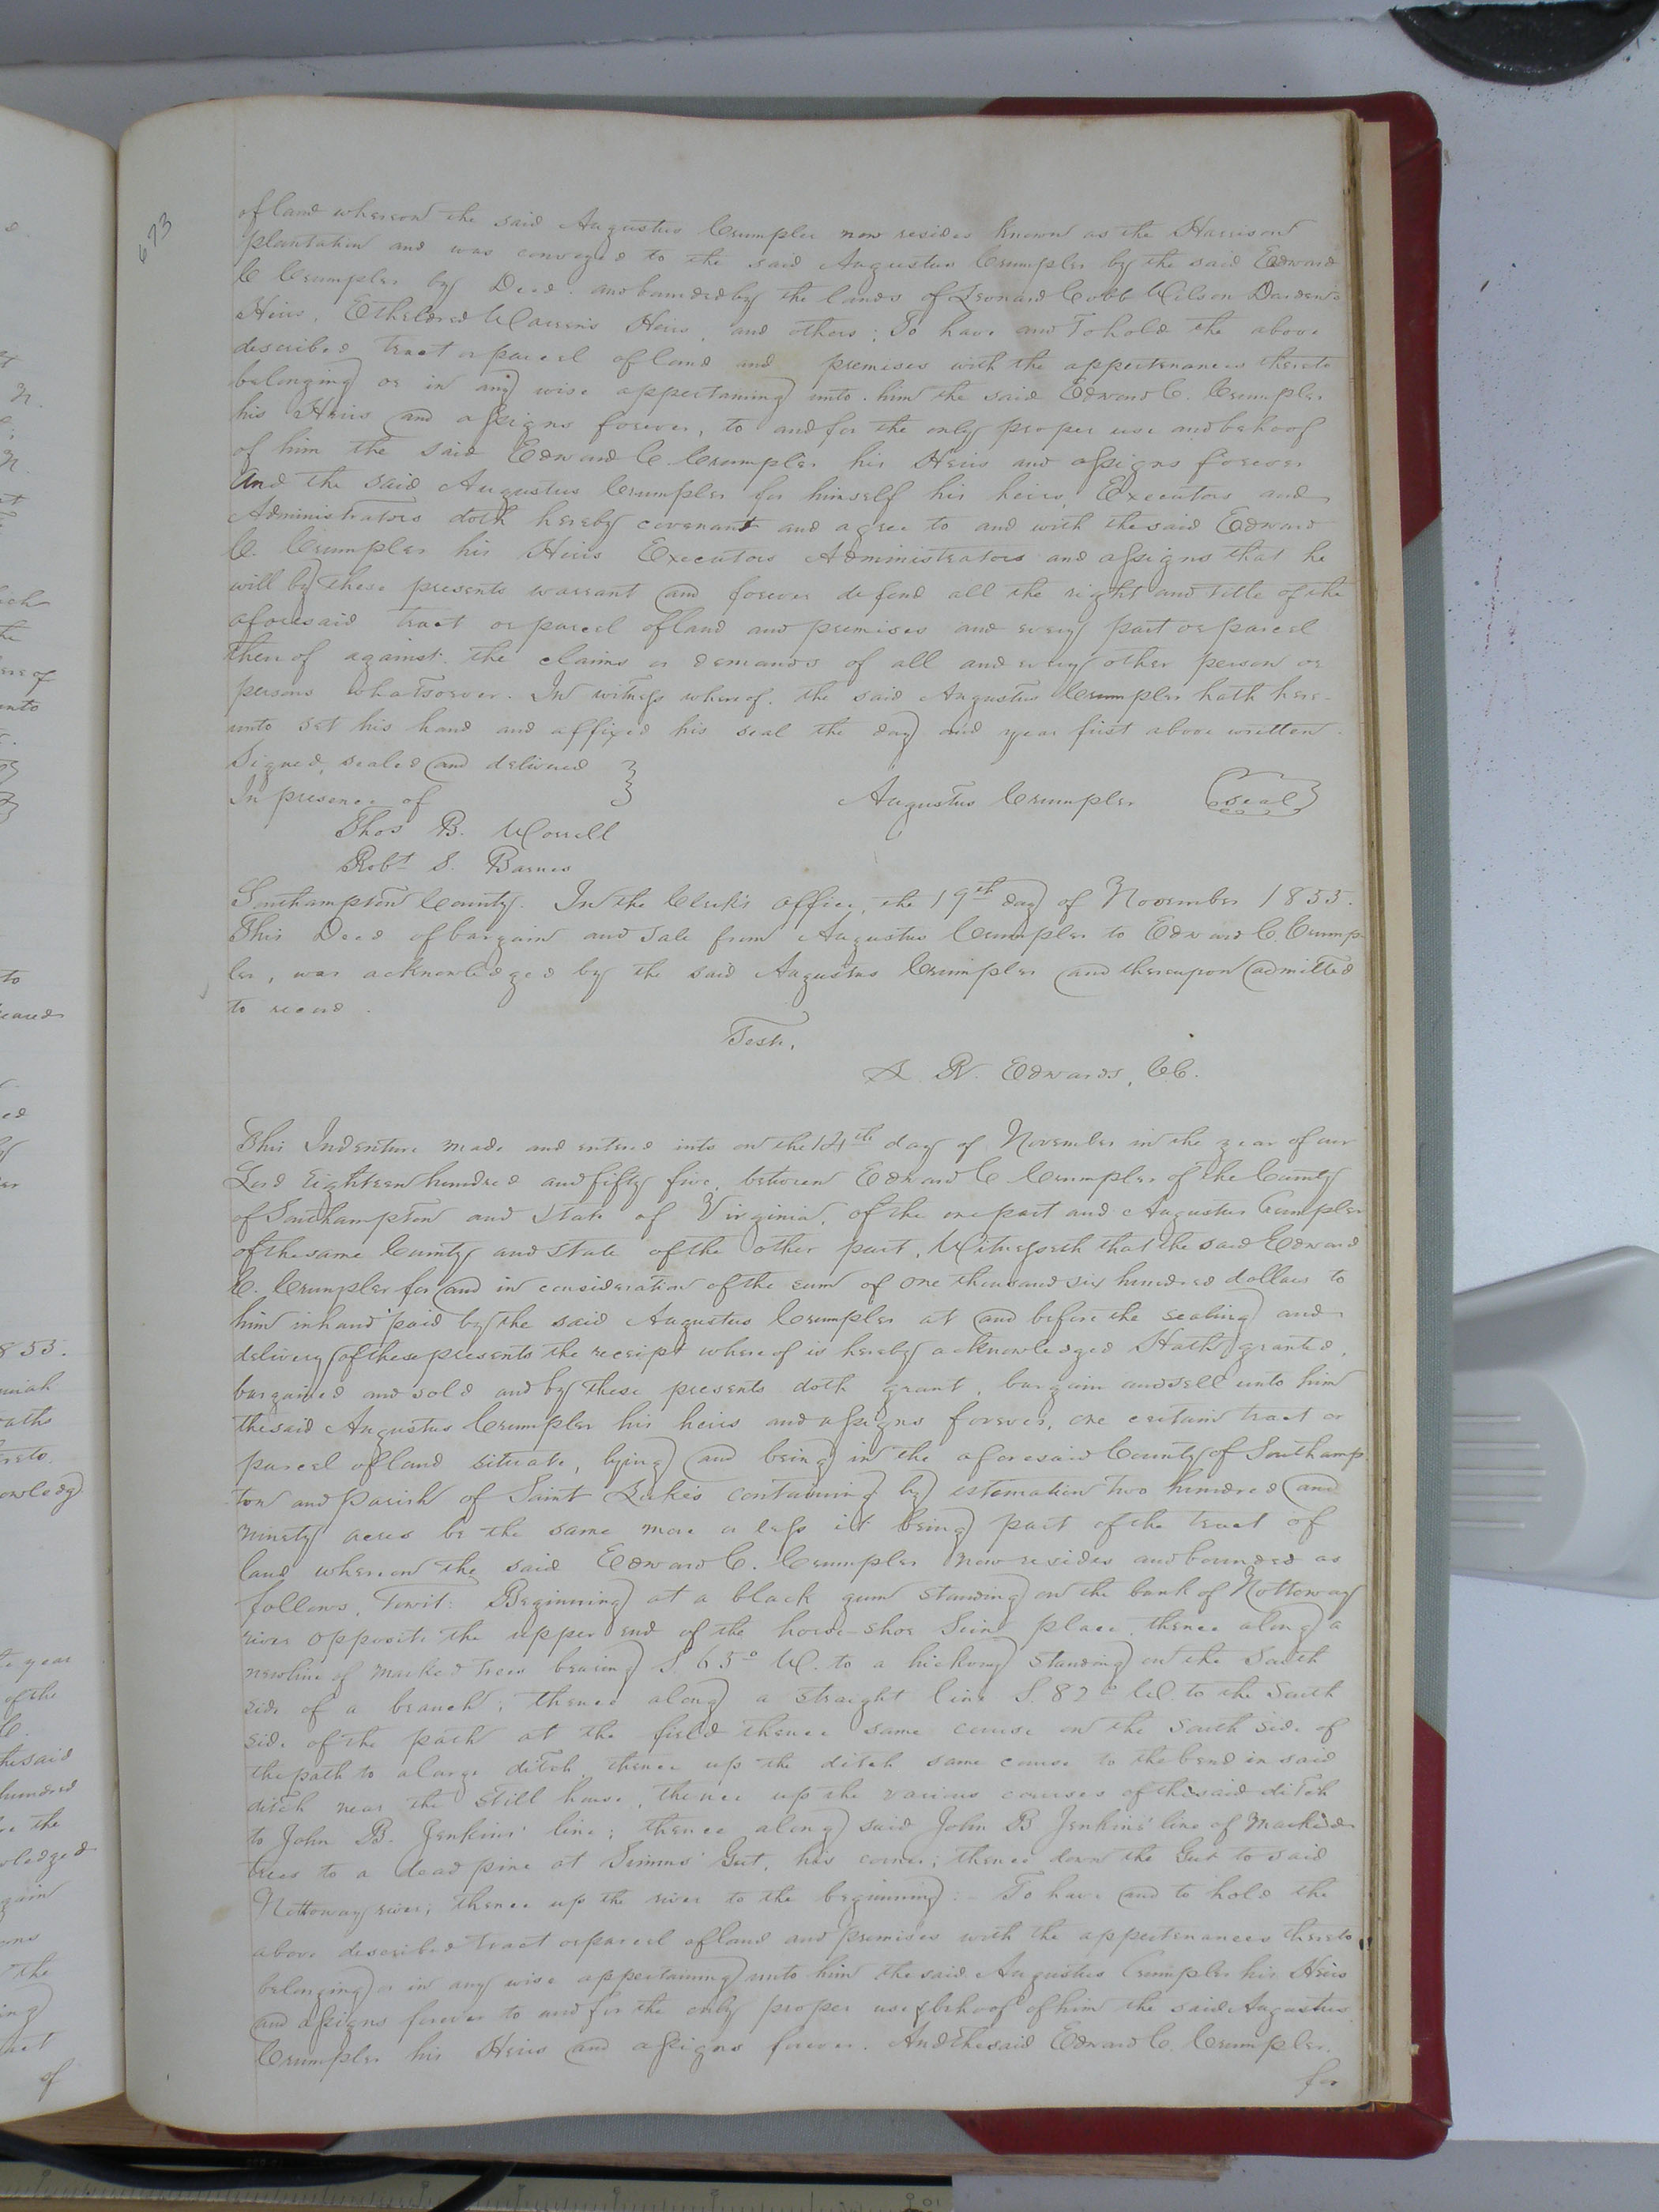 673
of land whereon the said Augustus Crumpler now resides known as the Harrison
plantation and was conveyed to the said Augustus Crumpler by the said Edward
C Crumpler by Deed: and bounded by the lands of Leonard Cobb Wilson Darden's
Heirs, Etheldred Warren's Heirs, and others; To have and To hold the above
described tract or parcel of land and premises with the appertenances thereto
belonging or in any wise appertaining unto him the said Edward C. Crumpler
his Heirs and assigns forever, to and for the only proper use and behoof
of him the said Edward C Crumpler his Heirs and assigns forever
And the said Augustus Crumpler for himself his heirs, Executors and
Administrators doth hereby covenant and agree to and with the said Edward
C. Crumpler his Heirs Executors Administrators and assigns that he
will by these presents warrant and forever defend all the right and title of the
aforesaid tract or parcel of land and premises and every part or parcel
thereof against the claims or demands of all and every other person or
persons whatsoever. In witness whereof. the said Augustus Crumpler hath here-
unto set his hand and affixed his seal the day and year first above written.
Signed, sealed and delivered
In presence of Augustus Crumpler seal
Thos B. Worrell
Robt S. Barnes
Southampton County. In the Clerk's office, the 19th day of November 1855.
This Deed of bargain and sale from Augustus Crumpler to Edward C. Crump-
ler, was acknowledged by the said Augustus Crumpler and thereupon admitted
to record.
Test,
L. R. Edwards, CC.
This Indenture made and entered into on the 14th day of November in the year of our
Lord Eighteen hundred and fifty five, between Edward C Crumpler of the County
of Southampton and State of Virginia, of the one part and Augustus Crumpler
of the same County and State of the other part, Witnesseth that the said Edward
C. Crumpler for and in consideration of the sum of one thousand six hundred dollars to
him in hand paid by the said Augustus Crumpler at and before the sealing and
delivery of these presents the receipt whereof is hereby acknowledged Hath granted,
bargained and sold and by these presents doth grant, bargain and sell unto him
the said Augustus Crumpler his heirs and assigns forever, one certain tract or
parcel of land situate, lying and being in the aforesaid County of Southamp
ton and parish of Saint Luke's containing by estemation two hundred and
ninety acres be the same more or less it being part of the tract of
land whereon the said Edward C. Crumpler now resides and bounded as
follows, Towit: Beginning at a black gum standing on the bank of Nottoway
river opposite the upper end of the horse-shoe Seine place, thence along a
new line of marked trees bearing S. 65° W. to a hickory standing on the South
side of a branch; thence along a straight line S. 82° W. to the South
side of the path at the field thence same course on the south side of
the path to a large ditch, thence up the ditch same course to the bend in said
ditch near the Still house, thence up the various courses of the said ditch
to John B. Jenkins' line; thence along said John B Jenkins' line of marked
trees to a dead pine at Simms' Gut, his corner; thence down the Gut to said
Nottoway river; thence up the river to the beginning: To have and to hold the
above described tract or parcel of land and premises with the appertenances thereto
belonging or in any wise appertaining unto him the said Augustus Crumpler his Heirs
and assigns forever to and for the only proper use & behoof of him the said Augustus
Crumpler his Heirs and assigns forever. And the said Edward C. Crumpler.
for